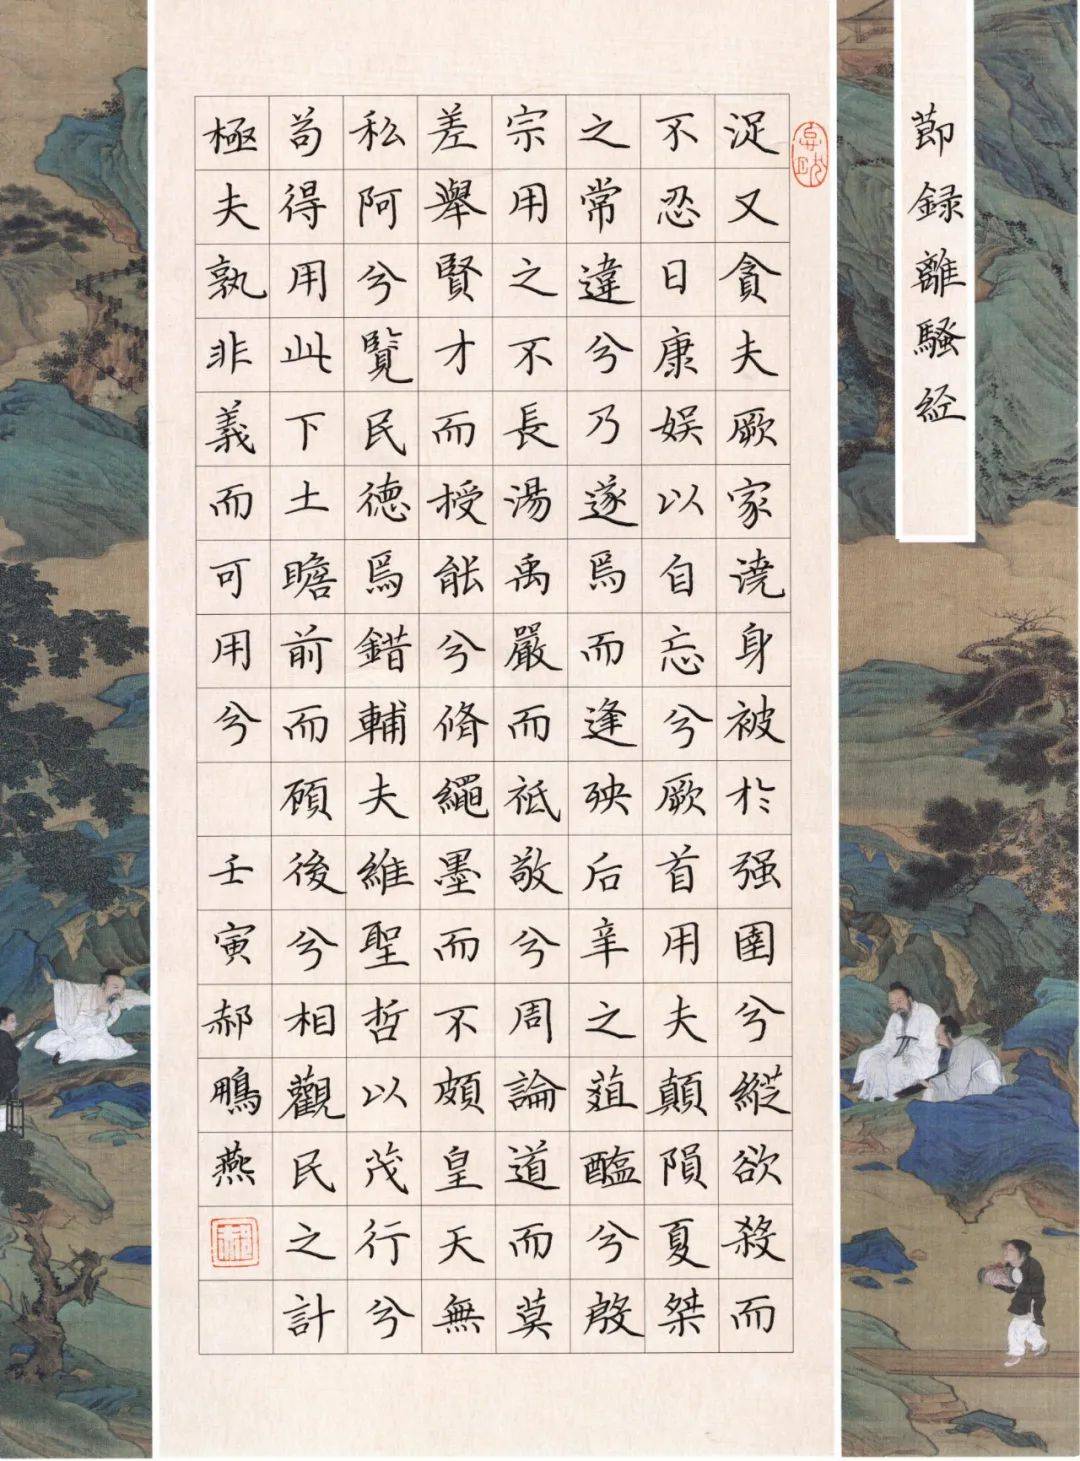 節録離騷経
浞又貪夫厥家澆身被於强圉兮縱欲殺而
不忍日康娱以自忘兮厥首用夫顛隕夏桀
之常違兮乃遂焉而逢殃后辛之菹醢兮殷
宗用之不長湯禹嚴而祗敬兮周論道而莫
差舉賢才而授能兮脩繩墨而不頗皇天無
私阿兮覽民德焉錯輔夫維聖哲以茂行兮
苟得用此下土瞻前而顧後兮相觀民之計
極夫孰非義而可用兮 壬寅郝鵬燕